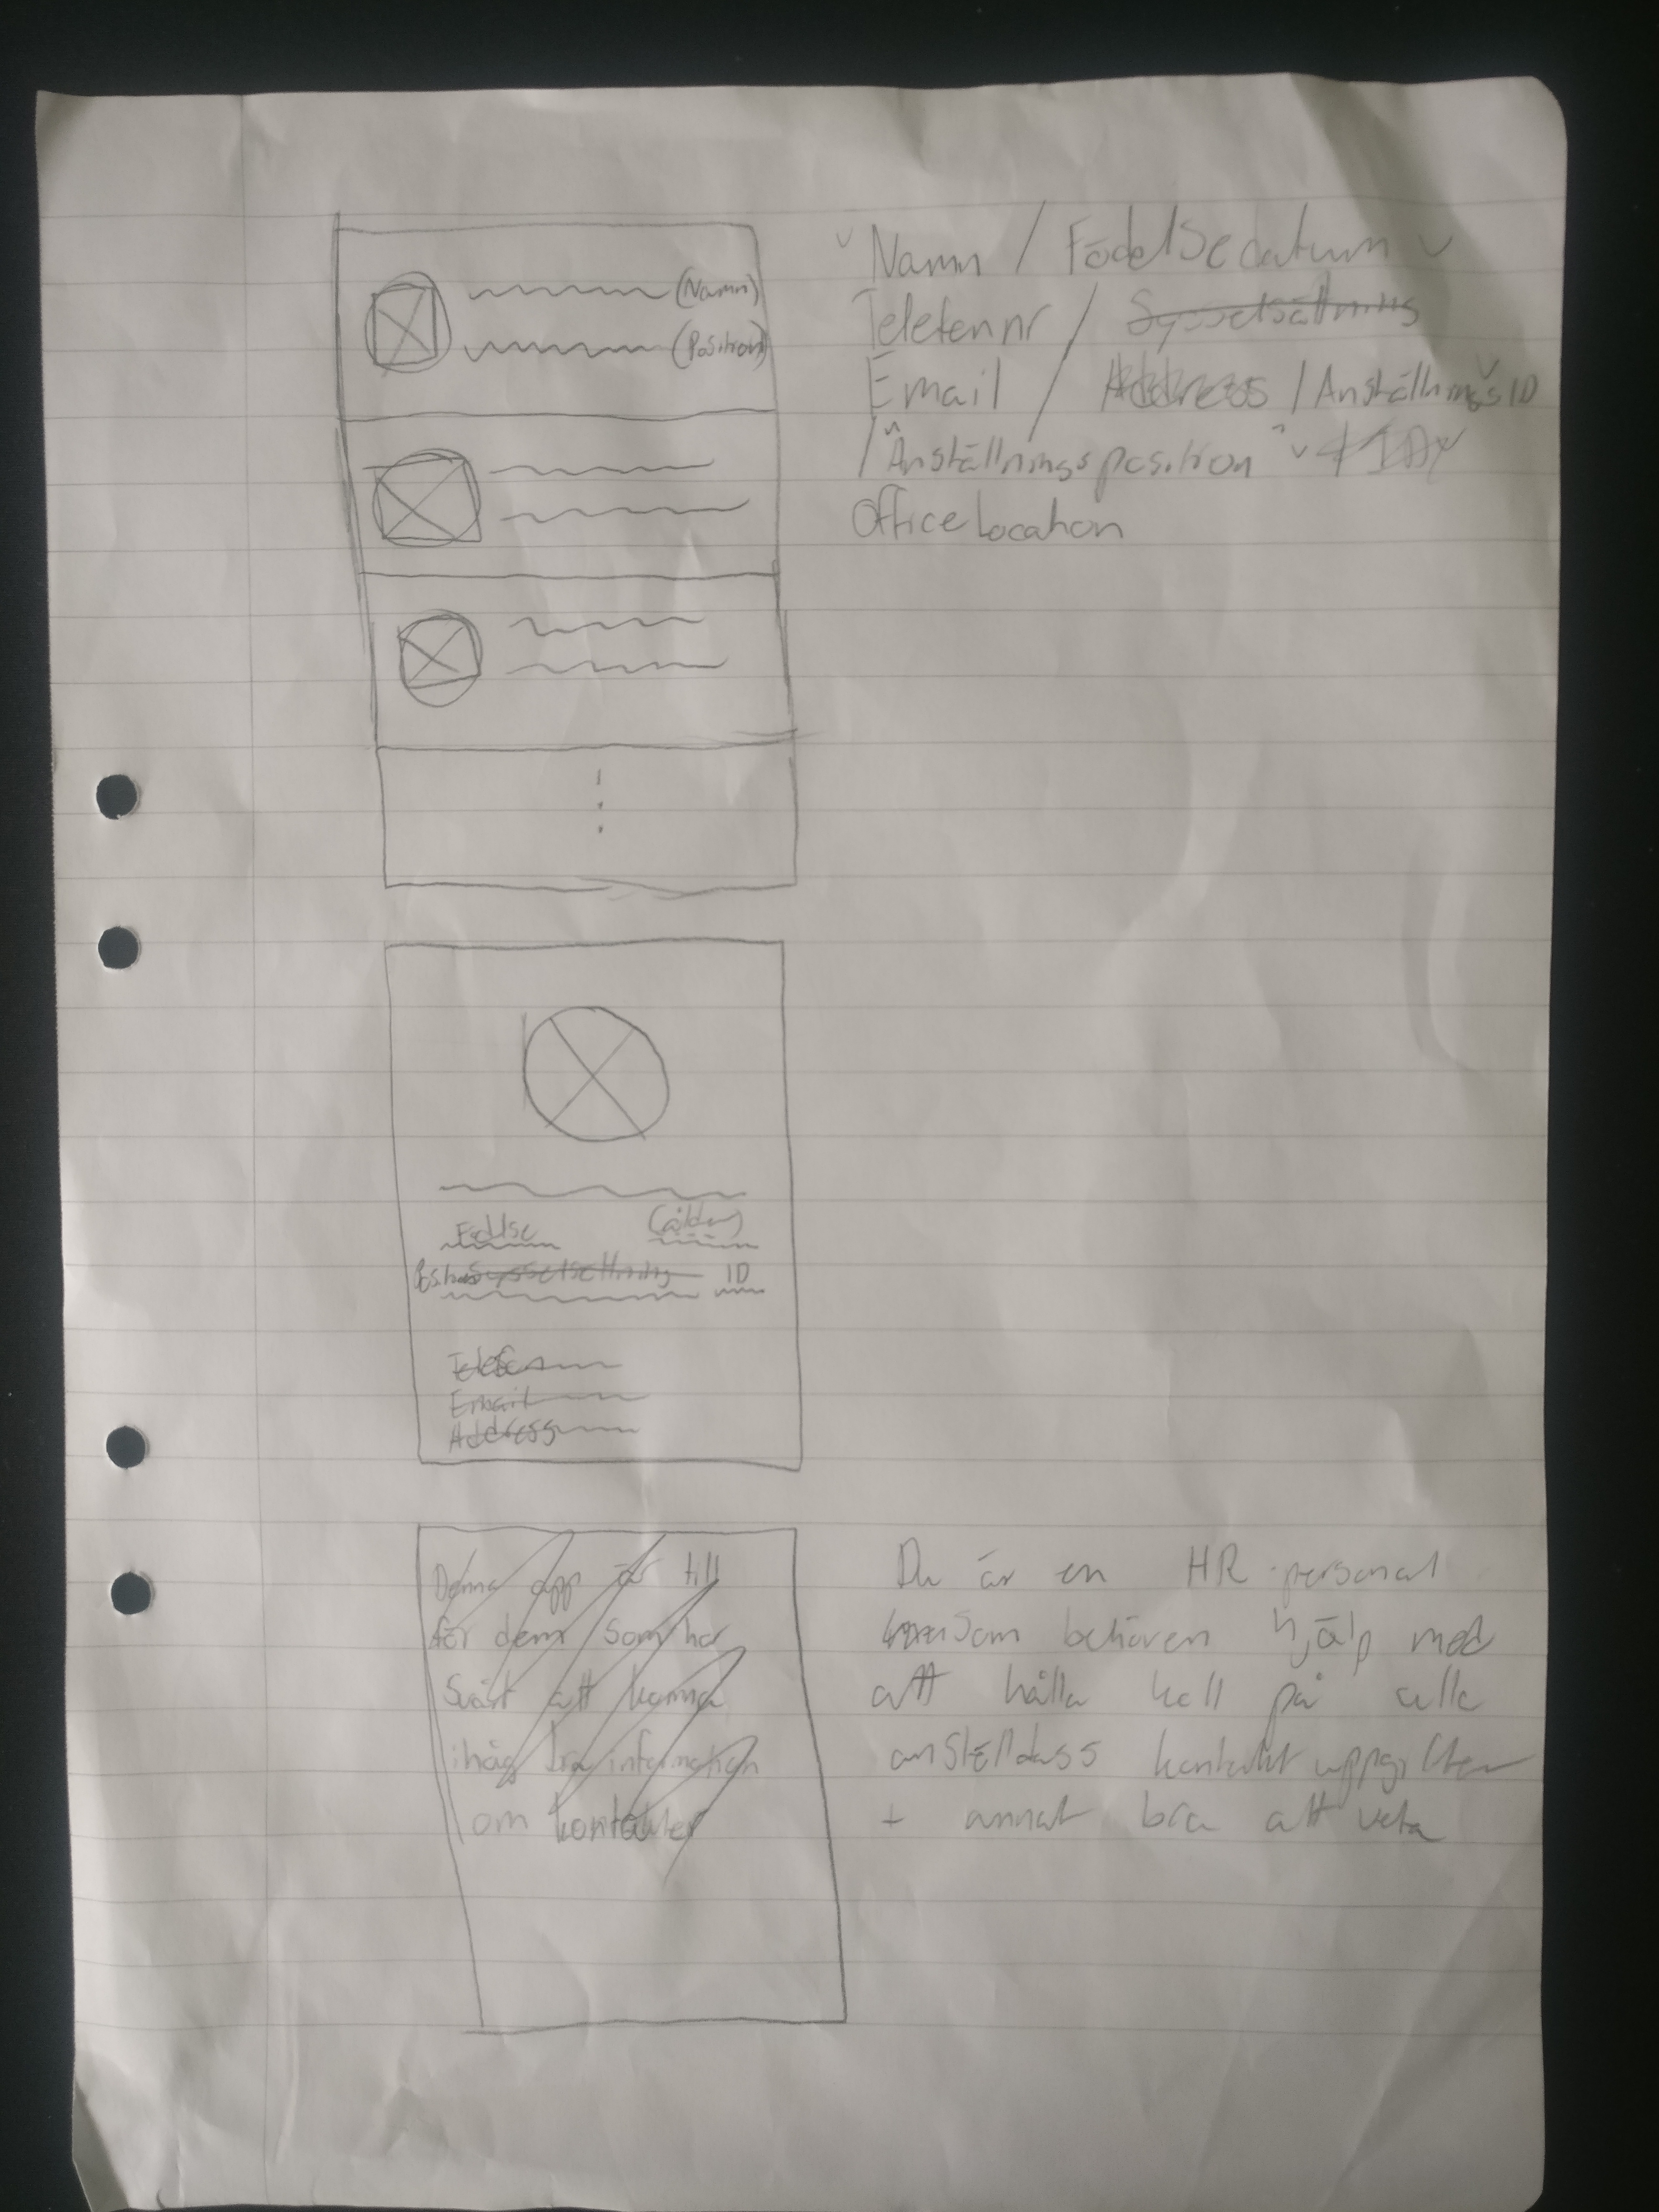 (Namn)
(Position)
Namn / Födelsedatum
Telefon nr / Sysselsättning
Email / Address / Anställnings ID
/ Anställningsposition
Office Location
Födlse (ålder)
Position Sysselsettning ID
Telefon
Email
Address
Denna app är till
för dem som har
Svårt att komma
ihåg bra information
om kontakter
Du är en HR-personal
som behöver hjälp med
att hålla koll på alla
anställdass kontakt uppgifter
+ annat bra att veta